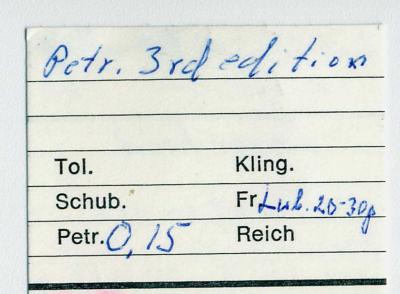 Petr. 3rd edition
Tol. Kling.
Schub. Fr Lub. 20-30p
Petr. 0,15 Reich